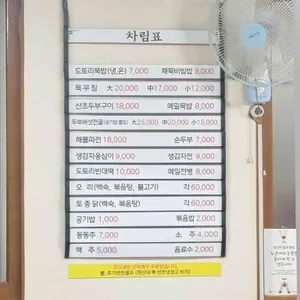 차림표
도토리묵밥(냉,온) 7,000 채묵비빔밥 8,000
묵무침 大 20,000 中 17,000 小 12,000
산초두부구이 18,000 메밀묵밥 8,000
두부버섯전골(공기밥 별도) 大 25,000 中 20,000 小 15,000
해물파전 18,000 순두부 7,000
생감자옹심이 9,000 생감자전 9,000
도토리빈대떡 10,000 메밀전병 8,000
오리(백숙, 볶음탕, 불고기) 각 60,000
토종닭(백숙, 볶음탕) 각 60,000
공기밥 1,000 볶음밥 2,000
동동주 7,000 소주 4,000
맥주 5,000 음료수 2,000